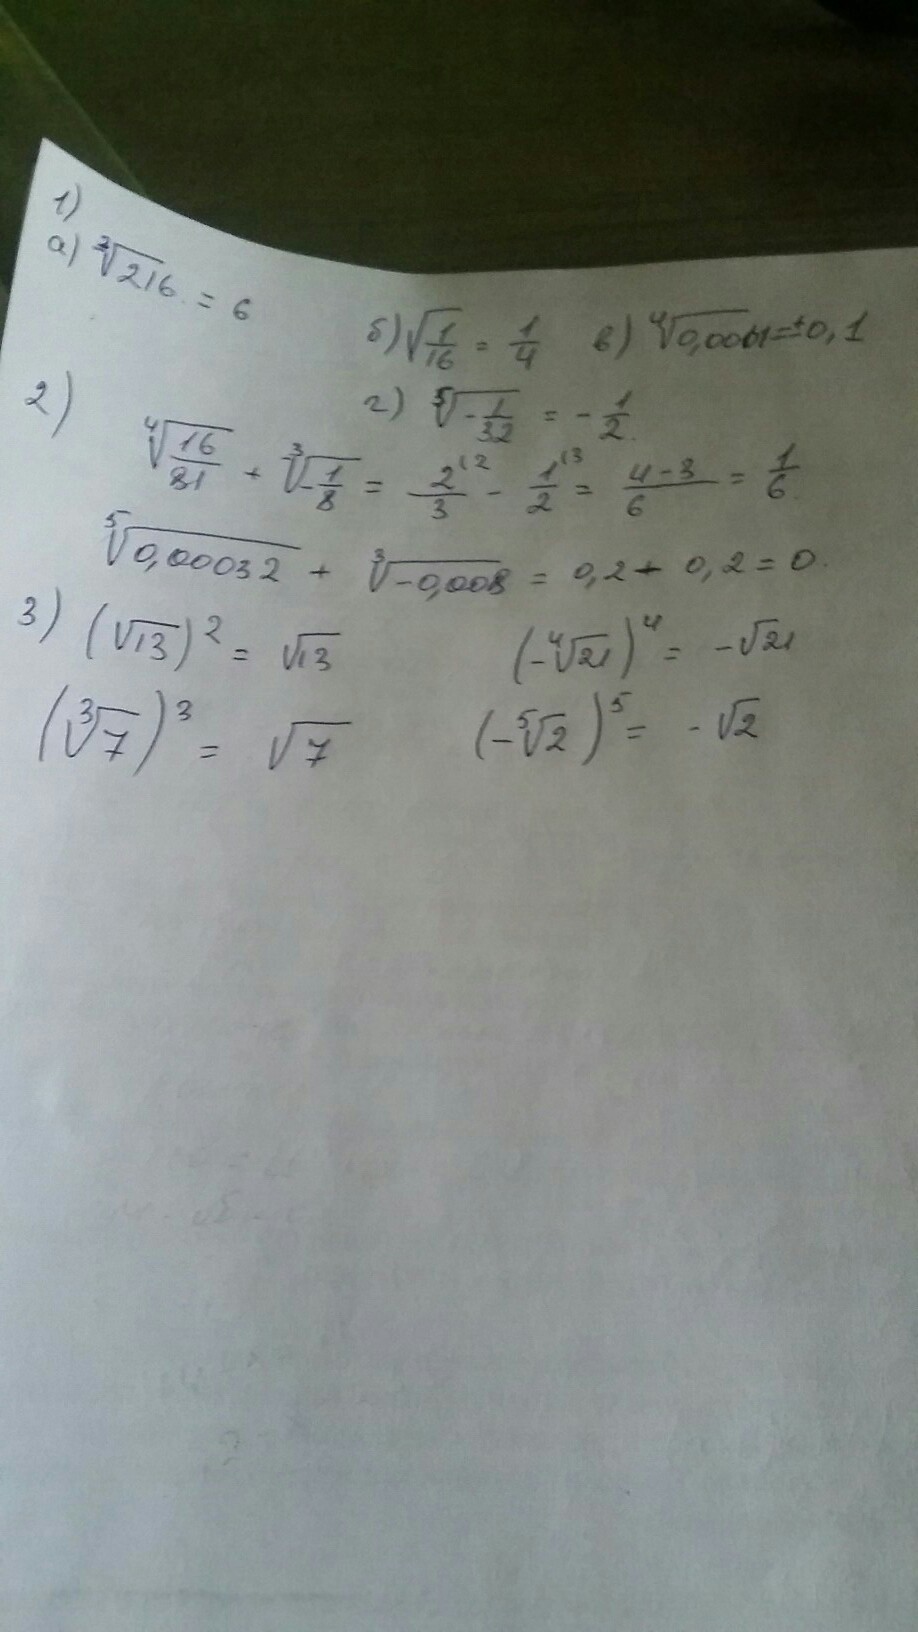 1)
а) ∛216 = 6
б) √(1/16) = 1/4 в) ∜0,0001 = ±0,1
2) г) ⁵√(-1/32) = -1/2.
∜(16/81) + ∛(-1/8) = 2⁽²/3 - 1⁽³/2 = (4-3)/6 = 1/6.
⁵√0,00032 + ∛-0,008 = 0,2 - 0,2 = 0.
3) (√13)² = √13 (-∜21)⁴ = -√21
(∛7)³ = √7 (-⁵√2)⁵ = -√2